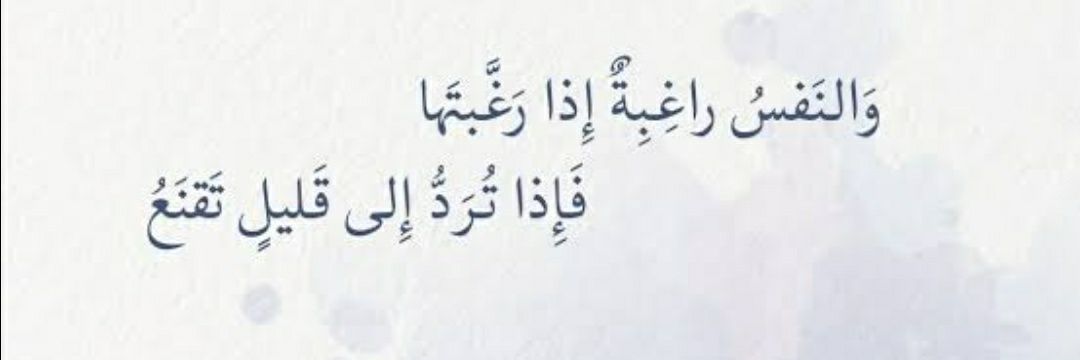 وَالنَفسُ راغِبِةٌ إِذا رَغَّبتَها
فَإِذا تُرَدُّ إِلى قَليلٍ تَقنَعُ